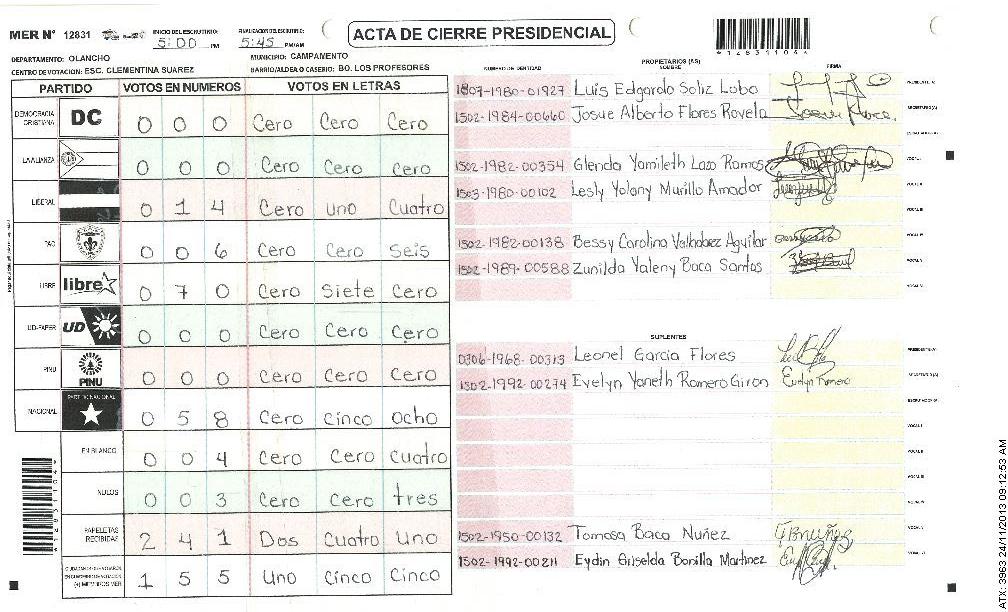 MER N° 12831
INICIO DEL ESCRUTINIO:
5:00 PM
FINALIZACION DEL ESCRUTINIO:
5:45 PM/AM
ACTA DE CIERRE PRESIDENCIAL
DEPARTAMENTO: OLANCHO
MUNICIPIO: CAMPAMENTO
CENTRO DE VOTACION: ESC. CLEMENTINA SUAREZ
BARRIO/ALDEA O CASERIO: BO. LOS PROFESORES
PARTIDO VOTOS EN NUMEROS VOTOS EN LETRAS
DEMOCRACIA CRISTIANA DC 0 0 0 Cero Cero Cero
LA ALIANZA 0 0 0 Cero Cero Cero
LIBERAL 0 1 4 Cero uno Cuatro
PAC 0 0 6 Cero Cero Seis
LIBRE libre 0 7 0 Cero Siete Cero
UD-FAPER UD 0 0 0 Cero Cero Cero
PINU PINU 0 0 0 Cero Cero Cero
NACIONAL PARTIDO NACIONAL 0 5 8 Cero cinco ocho
EN BLANCO 0 0 4 Cero Cero cuatro
NULOS 0 0 3 Cero Cero tres
PAPELETAS RECIBIDAS 2 4 1 Dos Cuatro Uno
1 5 5 Uno Cinco Cinco
NUMERO DE IDENTIDAD
PROPIETARIOS (AS)
NOMBRE
FIRMA
1807-1980-01927 Luis Edgardo Soliz Lobo
1502-1984-00660 Josue Alberto Flores Rovelo
1502-1982-00354 Glenda Yamileth Lazo Ramos
1503-1980-00102 Lesly Yolany Murillo Amador
1502-1982-00138 Bessy Carolina Valladarez Aguilar
1502-1989-00588 Zunilda Yaleny Baca Santos
SUPLENTES
0306-1968-00313 Leonel Garcia Flores
1502-1992-00274 Evelyn Yaneth Romero Giron Evelyn Romero
1502-1950-00132 Tomasa Baca Nuñez
1502-1992-00211 Eydin Griselda Bonilla Martinez
ATX: 3963 24/11/2013 09:12:53 AM